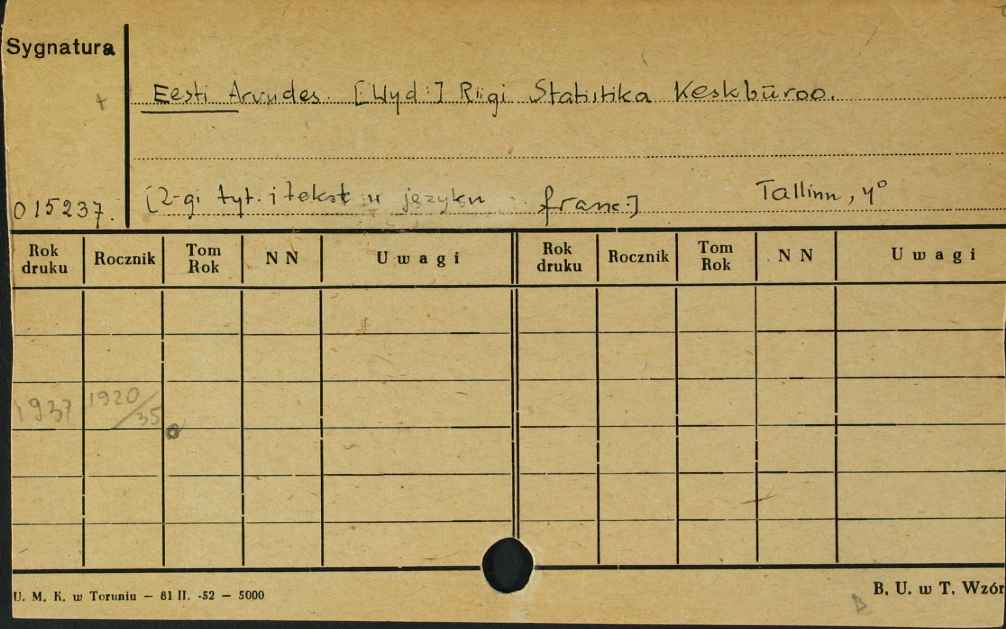 Sygnatura
Eesti Arvudes. [Wyd:] Riigi Statistika Keskbüroo.
015237. [2-gi tyt. i tekst w języku franc.] Tallinn, 4°
Rok druku Rocznik Tom Rok N N Uwagi Rok druku Rocznik Tom Rok N N Uwagi
1937 1920/35
U. M. K. w Toruniu — 81 II. -52 — 5000 B. U. w T. Wzór